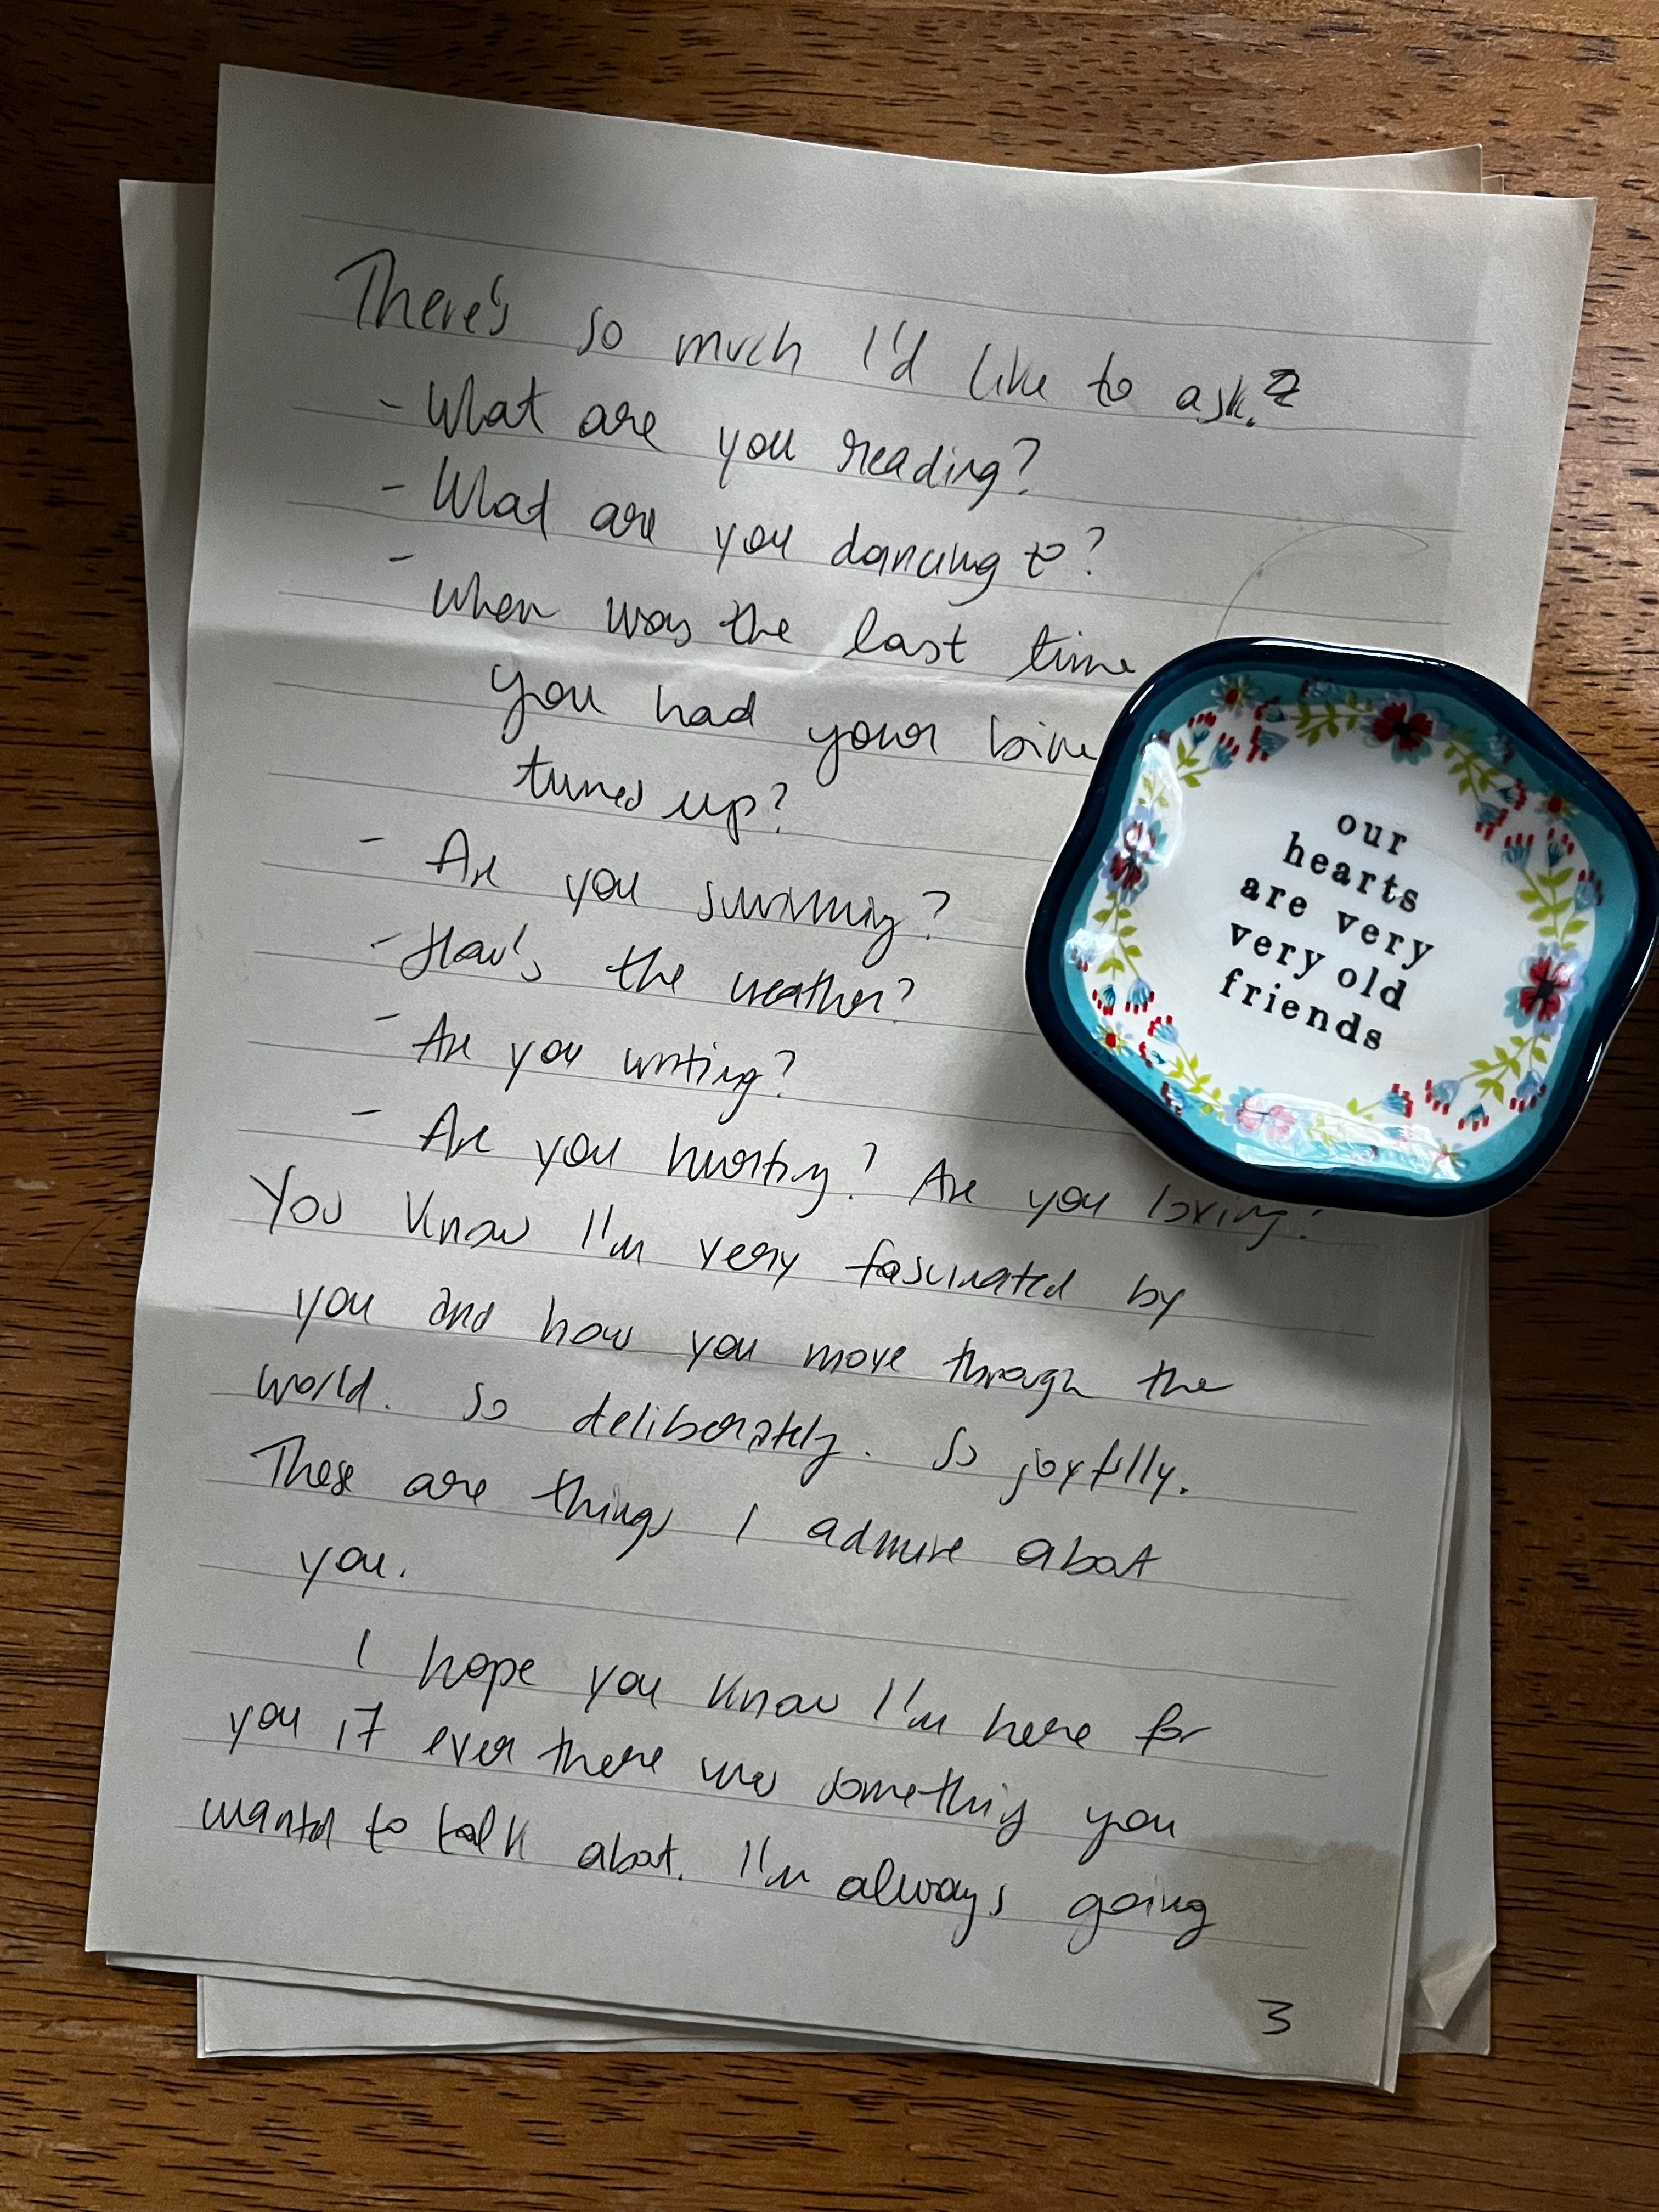 There's so much I'd like to ask.
- What are you reading?
- What are you dancing to?
- When was the last time
you had your bike
tuned up?
- Are you swimming?
- How's the weather?
- Are you writing?
- Are you hurting? Are you loving?
You know I'm very fascinated by
you and how you move through the
world. So deliberately. So joyfully.
These are things I admire about
you.
I hope you know I'm here for
you if ever there was something you
wanted to talk about. I'm always going
3
our
hearts
are very
very old
friends